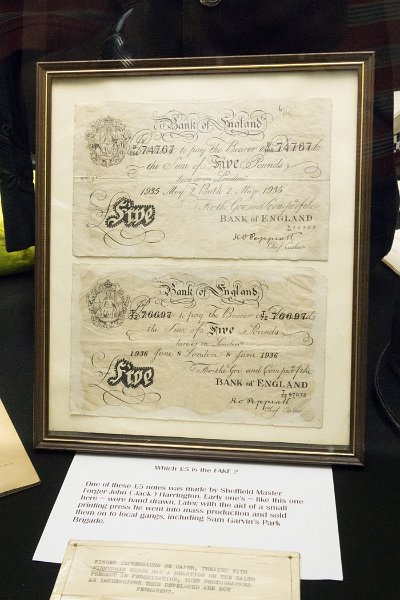 Bank of England
74767 to pay the Bearer on Demand
the Sum of Five Pounds
here or in London
1935 May 2 2 May 1935
For the Gov and Compa of the
BANK OF ENGLAND
74767
£ Five
K O Peppiatt
Chief Cashier
Bank of England
76697 to pay the Bearer on
the Sum of Five Pounds
here or in London
1936 June 8 London 8 June 1936
For the Gov and Compa of the
BANK OF ENGLAND
£ Five
K O Peppiatt
Chief Cashier
Which £5 is the FAKE ?
One of these £5 notes was made by Sheffield Master
Forger John ( Jack ) Harrington. Early one's – like this one
here – were hand drawn. Later with the aid of a small
printing press he went into mass production and sold
them on to local gangs, including Sam Garvin's Park
Brigade.
FINGER IMPRESSIONS ON PAPER, TREATED WITH
NINHYDRIN WHICH HAS A REACTION ON THE SALTS
PRESENT IN PERSPIRATION, THEN PHOTOGRAPHED
AS IMPRESSIONS THUS DEVELOPED ARE NOT
PERMANENT.